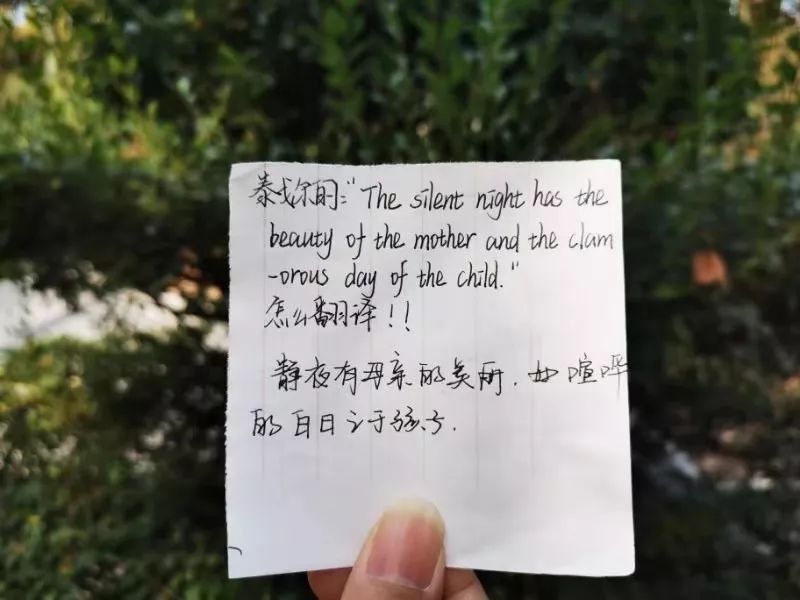 泰戈尔的:"The silent night has the
beauty of the mother and the clam
-orous day of the child."
怎么翻译!!
静夜有母亲的美丽.如喧哗
的白日之于孩子.